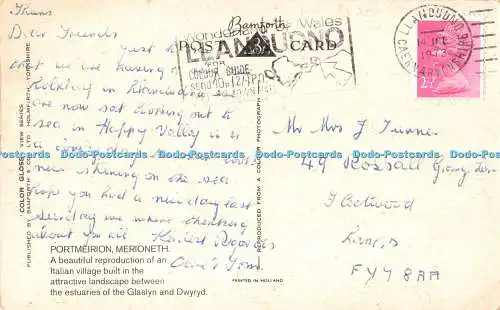 Thurs
Dear Friends
Just to
that we are having a
holiday in Llandudno we
are now sat looking out to
sea in Happy Valley it is
a lovely day
new shining on the sea.
hope you had a nice day last
Saturday we were thinking
about you all Kindest Regards
Bamforth
POST CARD
Wonderful Wales
LLANDUDNO
FOR
COLOUR GUIDE
LLANDUDNO
14
CAERNARVONSHIRE
2½
Mr Mrs J Turner
49 Rossall Grange Lane
Fleetwood
Lancs
FY7 8AA
COLOR GLOSS VIEW SERIES
PUBLISHED BY BAMFORTH & CO., LTD., HOLMFIRTH, YORKSHIRE.
REPRODUCED FROM A COLOUR PHOTOGRAPH
PORTMEIRION, MERIONETH.
A beautiful reproduction of an
Italian village built in the
attractive landscape between
the estuaries of the Glaslyn and Dwyryd.
PRINTED IN HOLLAND